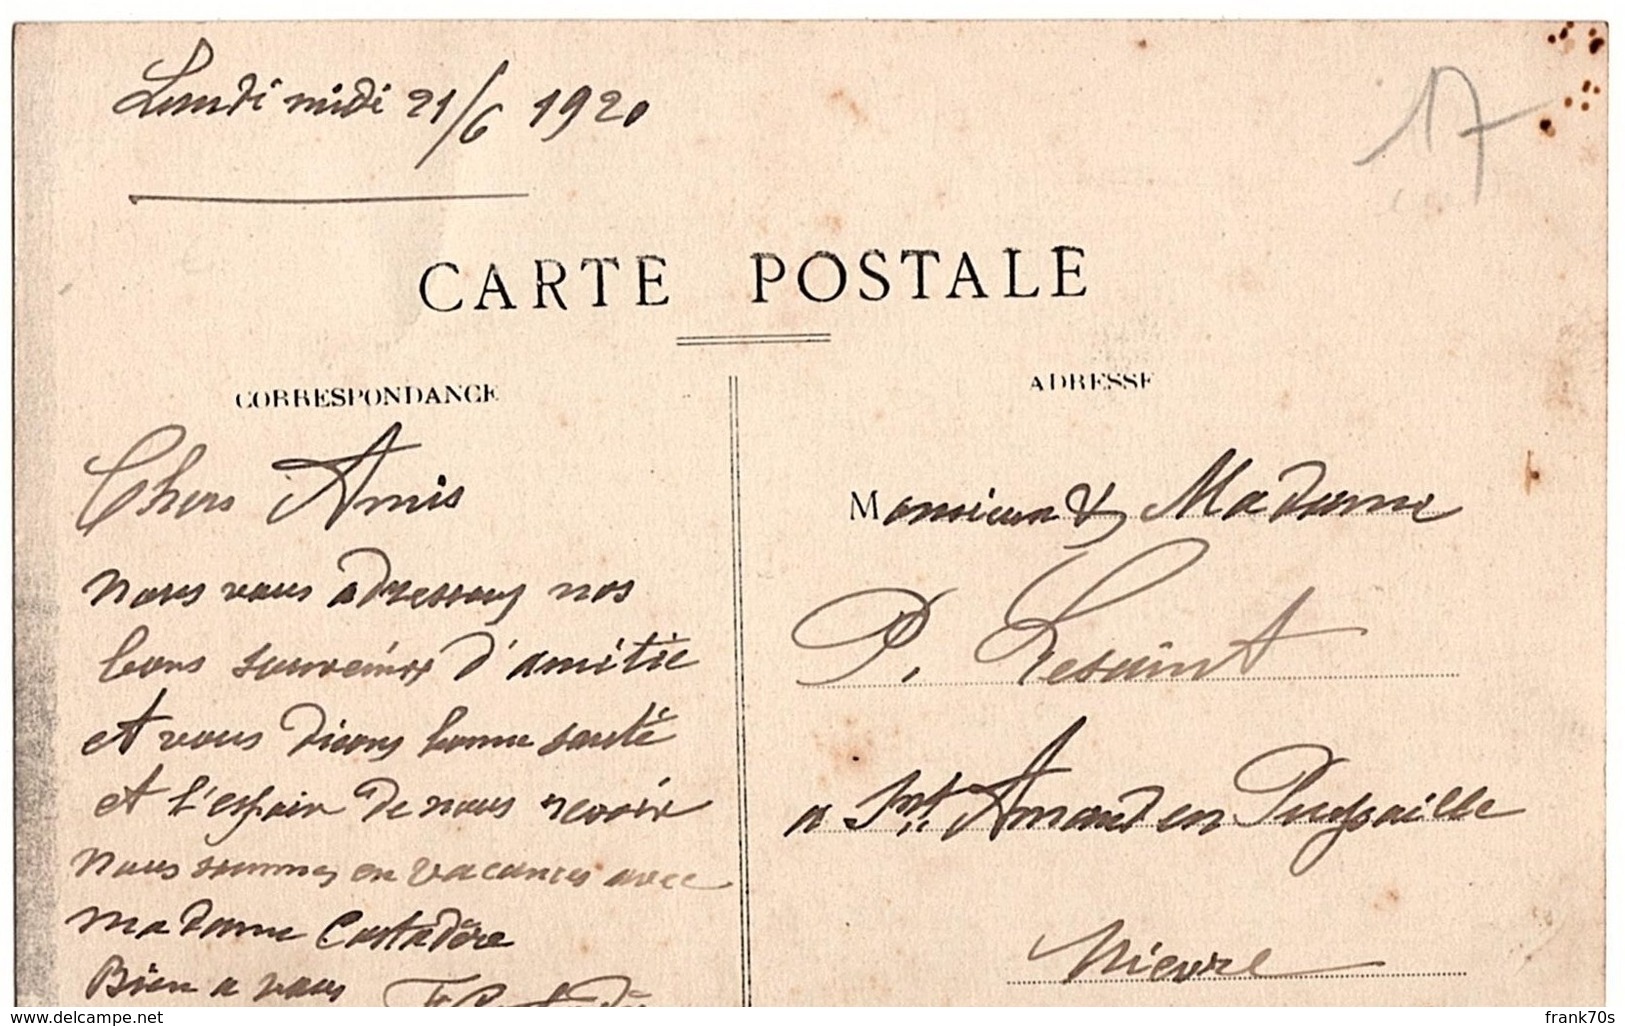 Lundi midi 21/6 1920
17
CARTE POSTALE
CORRESPONDANCE
Chers Amis
nous vous adressons nos
bons souvenirs d'amitié
et vous disons bonne santé
et l'espoir de nous revoir
nous sommes en vacances avec
madame Castadère
Bien a vous
ADRESSE
Monsieur & Madame
P. Lesaint
a Snt. Amand en Puysaille
Nievre
www.delcampe.net
frank70s